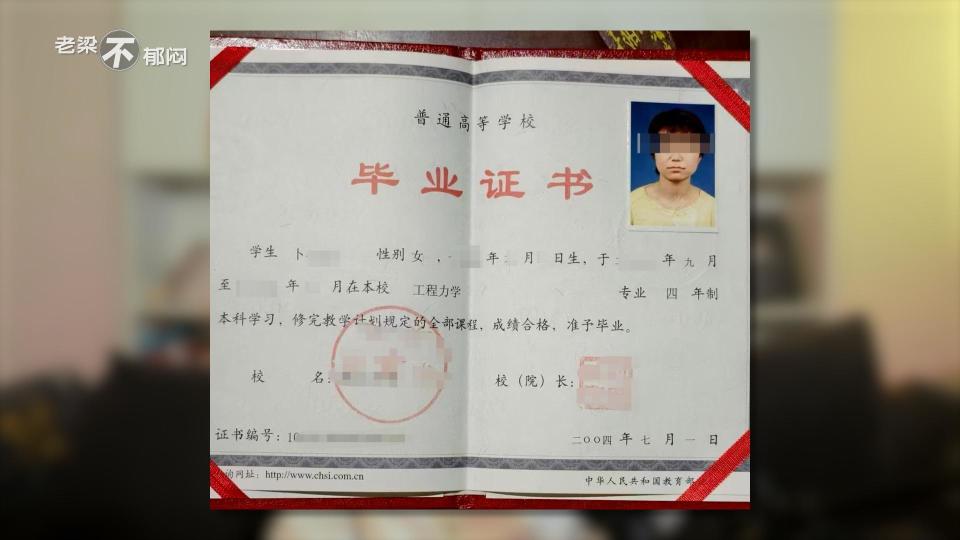 老梁不郁闷
普通高等学校
毕业证书
学生 卜 性别 女 , 年 月 日生，于 年 九 月
至 年 月在本校 工程力学 专业 四 年制
本科学习，修完教学计划规定的全部课程，成绩合格，准予毕业。
校 名： 校（院）长：
证书编号：10 二〇〇四 年 七 月 一 日
询网址：http://www.chsi.com.cn 中华人民共和国教育部